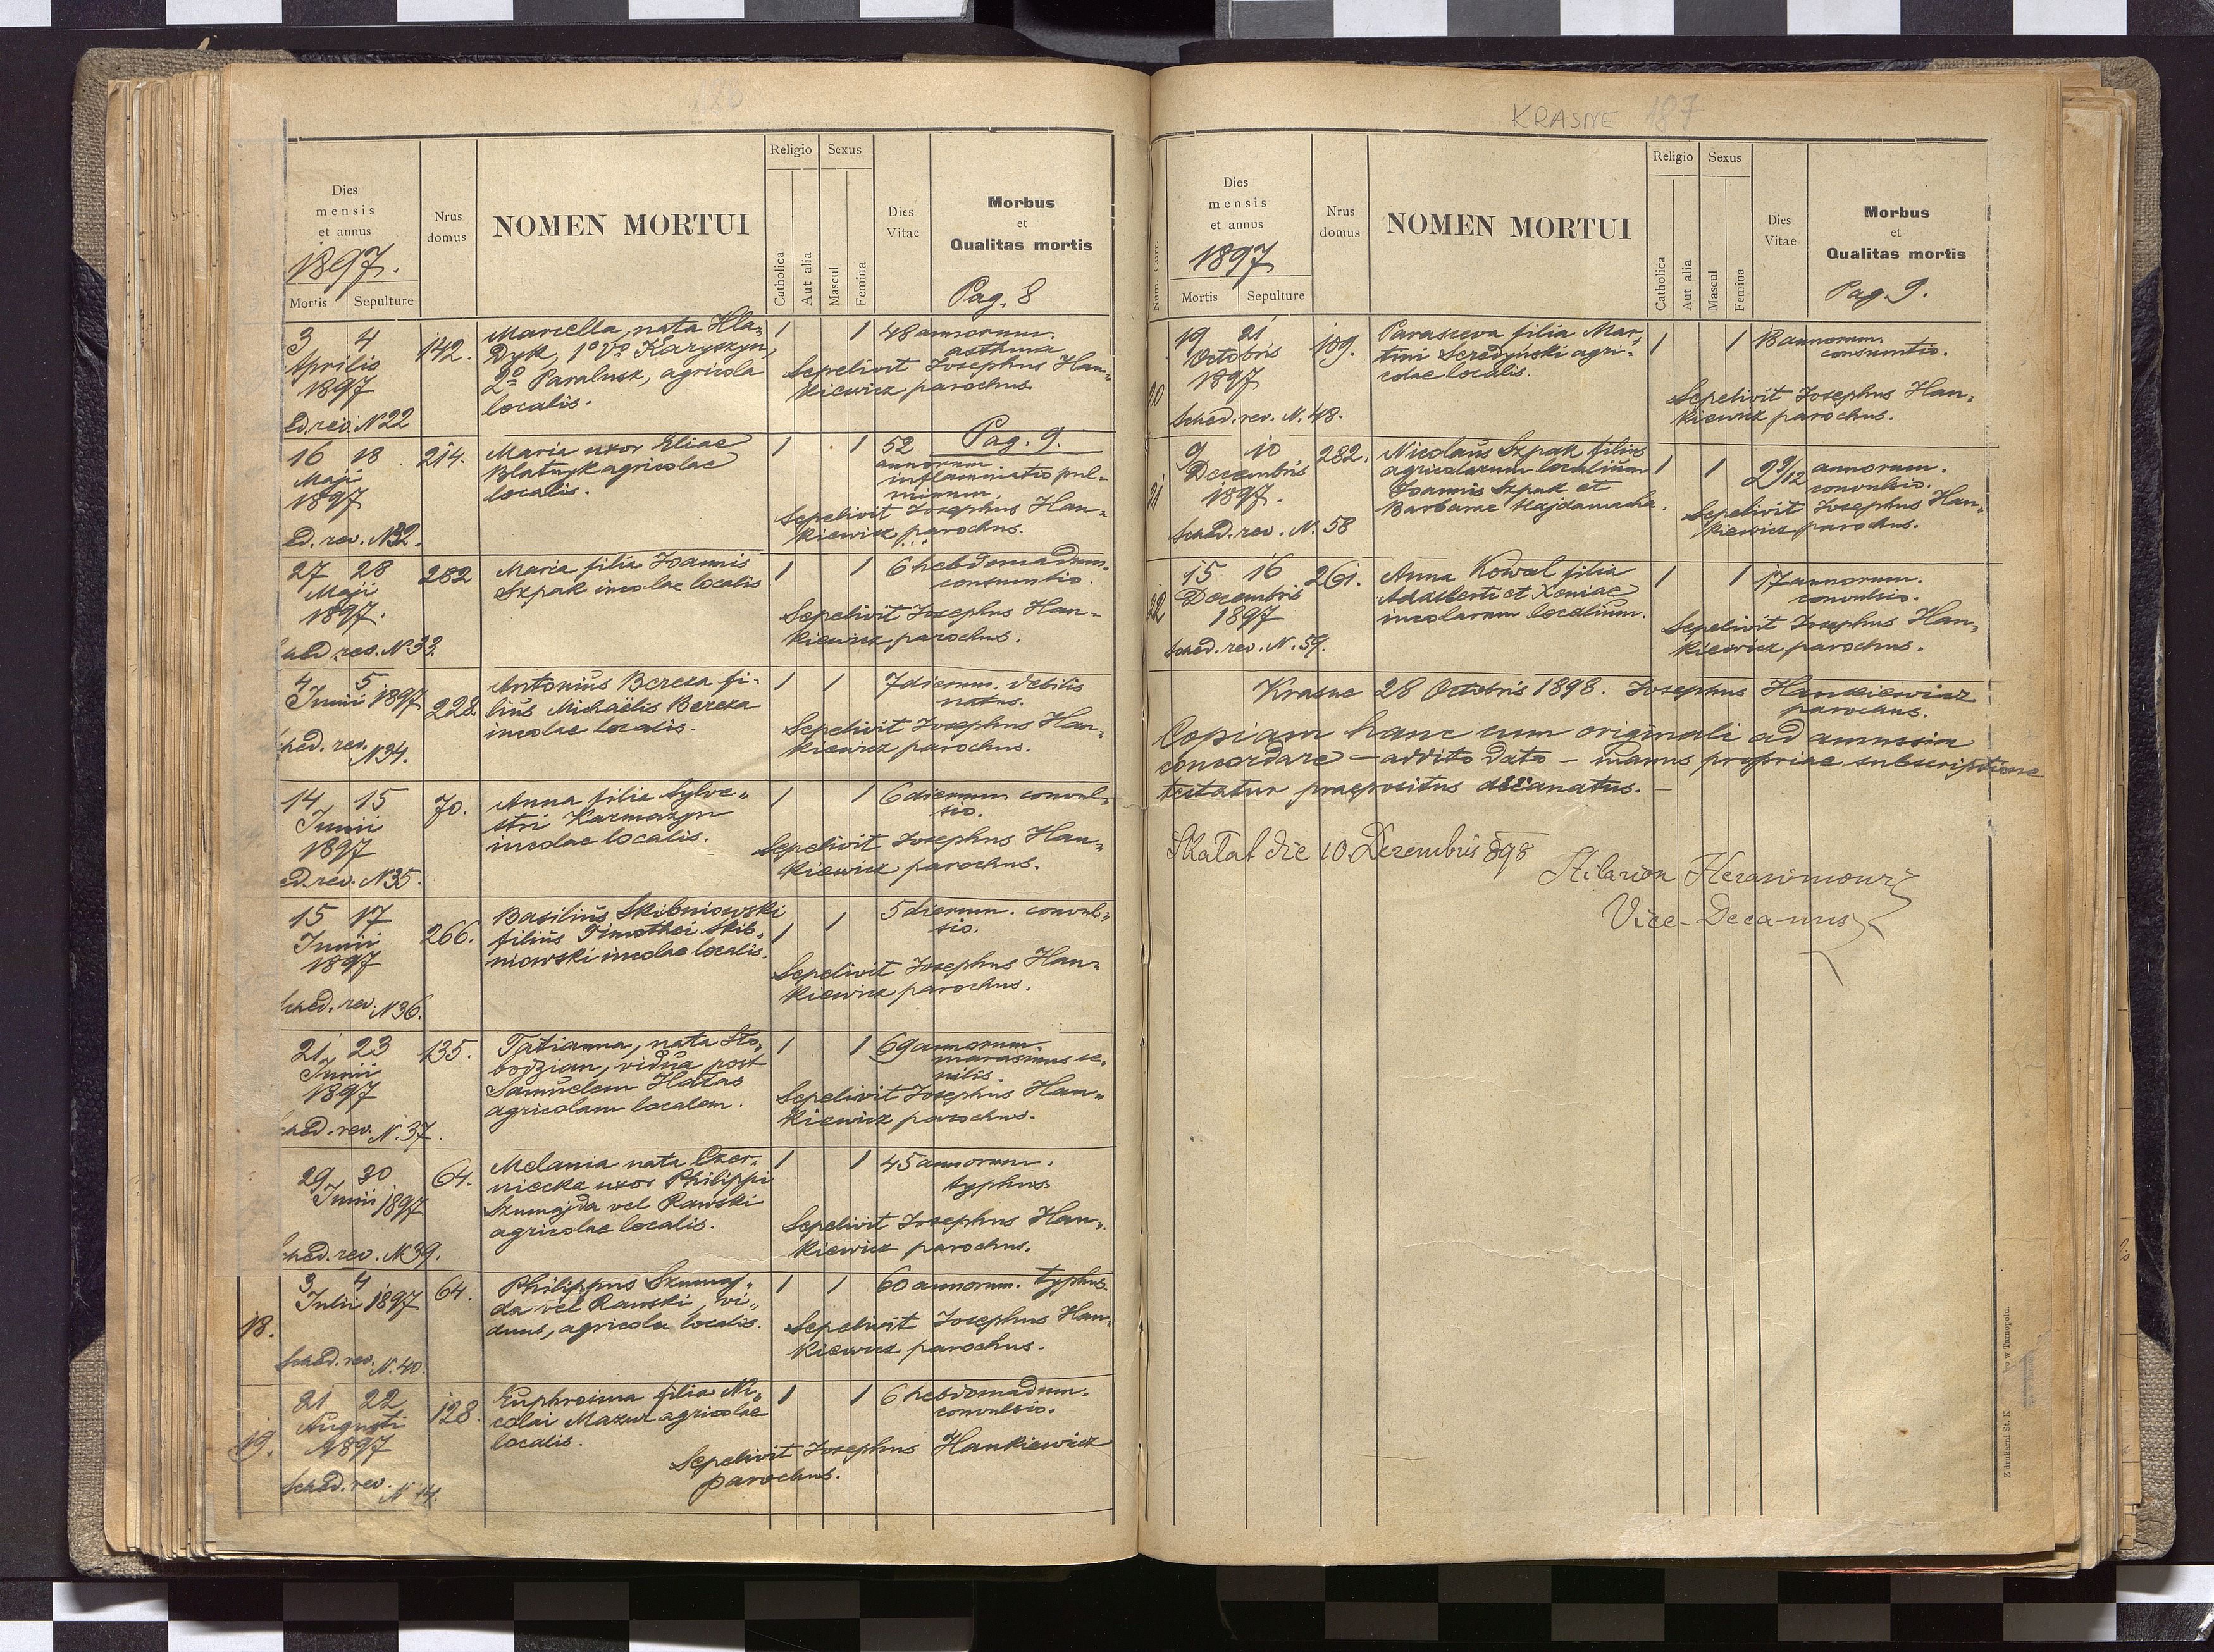 Dies
mensis
et annus
1897.
Mortis Sepulture
Nrus
domus
NOMEN MORTUI
Religio
Catholica
Aut alia
Sexus
Mascul
Femina
Dies
Vitae
Morbus
et
Qualitas mortis
Pag. 8
3 4
Aprilis
1897
ed. rev. N 22
142.
Marcella, nata Hla„
dyk, 1º vº Karyszyn,
2º Paralusz, agricola
localis.
1 1
48 annorum.
asthma
Sepelivit Josephus Han„
kiewicz parochus.
Pag. 9.
16 18
Maji
1897
ed. rev. N 32.
214.
Maria uxor Eliae
Blatnyk agricolae
localis.
1 1
52
annorum
inflammatio pul-
monum.
Sepelivit Josephus Han-
kiewicz parochus.
27 28
Maji
1897.
hed. res. N 33.
282
Maria filia Joannis
Szpak incolae localis
1 1
6 hebdomadum.
consumtio.
Sepelivit Josephus Han-
kiewicz parochus.
4 5
Junii 1897
hed. rev. N 34.
228.
Antonius Bereza fi-
lius Michaelis Bereza
incolae localis.
1 1
7 dierum. debilis
natus.
Sepelivit Josephus Han„
kiewicz parochus.
14 15
Junii
1897
ed. rev. N 35.
70.
Anna filia Sylve„
stri Karmazyn
incolae localis.
1 1
6 dierum convul„
sio.
Sepelivit Josephus Han„
kiewicz parochus.
15 17
Junii
1897
ched. rev. N 36.
266.
Basilius Skibniowski
filius Timothei Skib„
niowski incolae localis.
1 1
5 dierum. convul„
sio.
Sepelivit Josephus Han„
kiewicz parochus.
21 23
Junii
1897
hed. rev. N. 37.
135.
Tatianna, nata Sło„
bodzian, vidua post
Samuelem Hałas
agricolam localem.
1 1
69 annorum.
marasmus se„
nilis.
Sepelivit Josephus Han„
kiewicz parochus.
29 30
Junii 1897
ched. rev. N 39.
64.
Melania nata Czer„
niecka uxor Philippi
Szumajda vel Rawski
agricolae localis.
1 1
45 annorum.
typhus
Sepelivit Josephus Han„
kiewicz parochus.
18.
3 4
Julii 1897
Sched. rev. N. 40.
64.
Philippus Szumaj„
da vel Rawski, vi„
duus, agricola localis.
1 1
60 annorum. typhus
Sepelivit Josephus Han„
kiewicz parochus.
19.
21 22
Augusti
1897
Sched. rev. N 44.
128.
Euphrosima filia Ni„
colai Mazur agricolae
localis.
1 1
6 hebdomadum.
convulsio.
Sepelivit Josephus Hankiewicz
parochus.
KRASNE 187
Num. Curr.
Dies
mensis
et annus
1897
Mortis Sepulture
Nrus
domus
NOMEN MORTUI
Religio
Catholica
Aut alia
Sexus
Mascul
Femina
Dies
Vitae
Morbus
et
Qualitas mortis
Pag 9.
20
19 21
Octobris
1897
Sched. rev. N. 48.
109.
Parasceva filia Mar„
tini Seredyński agri-
colae localis.
1 1
18 annorum.
consumtio.
Sepelivit Josephus Han„
kiewicz parochus.
21
9 10
Decembris
1897.
Sched. rev. N. 58
282.
Nicolaus Szpak filius
agricolarum localium
Joannis Szpak et
Barbarae Hajdamacha.
1 1
2 9/12 annorum.
convulsio.
Sepelivit Josephus Han„
kiewicz parochus.
22
15 16
Decembris
1897
Sched. rev. N. 59.
261.
Anna Kowal filia
Adalberti et Xeniae
incolarum localium.
1 1
17 annorum.
convulsio.
Sepelivit Josephus Han„
kiewicz parochus.
Krasne 28 Octobris 1898. Josephus Hankiewicz
parochus.
Copiam hanc cum originali ad amussim
concordare — addito dato — manus propriae subscriptione
testatur praepositus decanatus. —
Skałat die 10. Decembris 898
Hilarion Herasimowicz
Vice-Decanus
Z drukarni St. K w Tarnopolu.